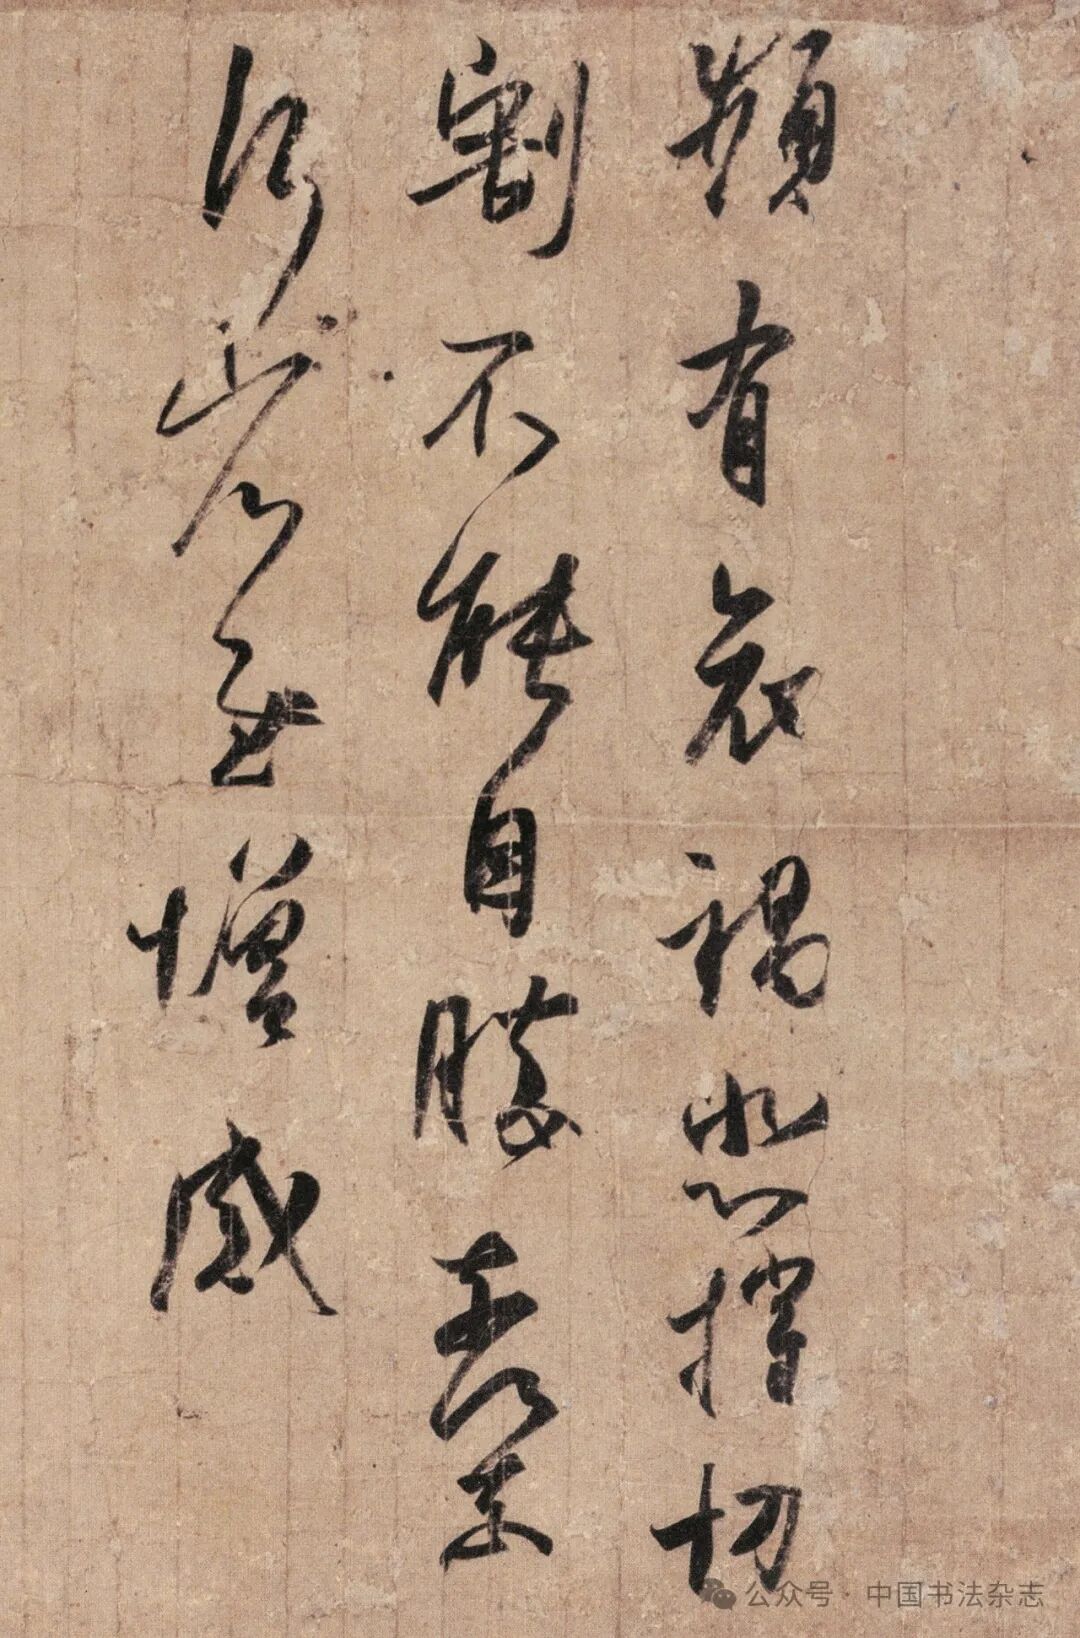 頻有哀禍悲摧切
割不能自勝奈何奈
何省慰增感
公众号·中国书法杂志